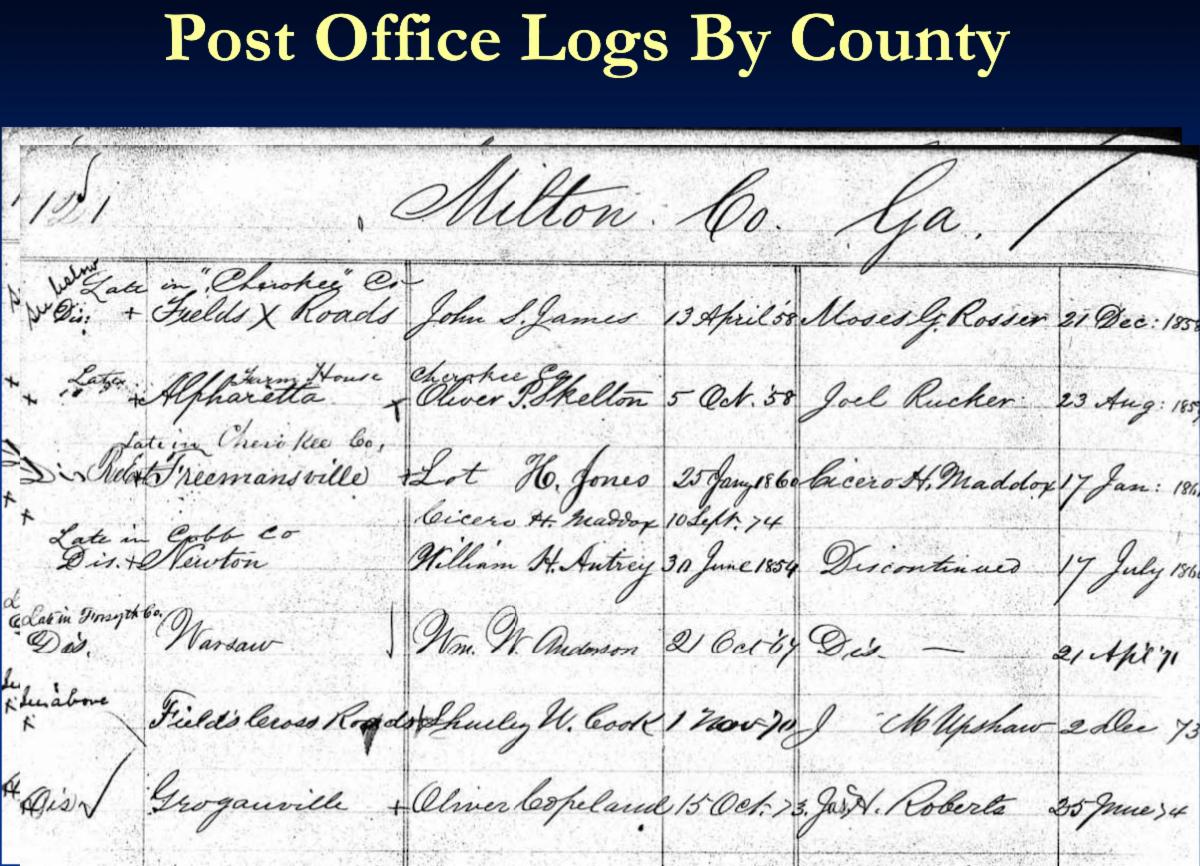 Post Office Logs By County
Milton Co. Ga.
See below
Late in "Cherokee" Co
Dis: + Fields X Roads John S. James 13 April '58 Moses G. Rosser 21 Dec: 185
Late Farm House Cherokee Co
+ Alpharetta Oliver P. Skelton 5 Oct. '58 Joel Rucker 23 Aug: 185
Late in Cherokee Co,
Dis + Freemansville + Lot H. Jones 25 Jany 1860 Cicero H. Maddox 17 Jan: 186
Cicero H. Maddox 10 Sept. 74
Late in Cobb Co
Dis. + Newton William H. Autrey 30 June 1854 Discontinued 17 July 186
Late in Forsyth Co.
Dis. Warsaw Wm. W. Anderson 21 Oct '67 Dis. — 21 Apl '71
See above
Field's Cross Roads + Shurley W. Cook 1 Nov J M Upshaw 2 Dec 73
Dis ✓ Groganville + Oliver Copeland 15 Oct. 73. Jas. H. Roberts 25 June 74